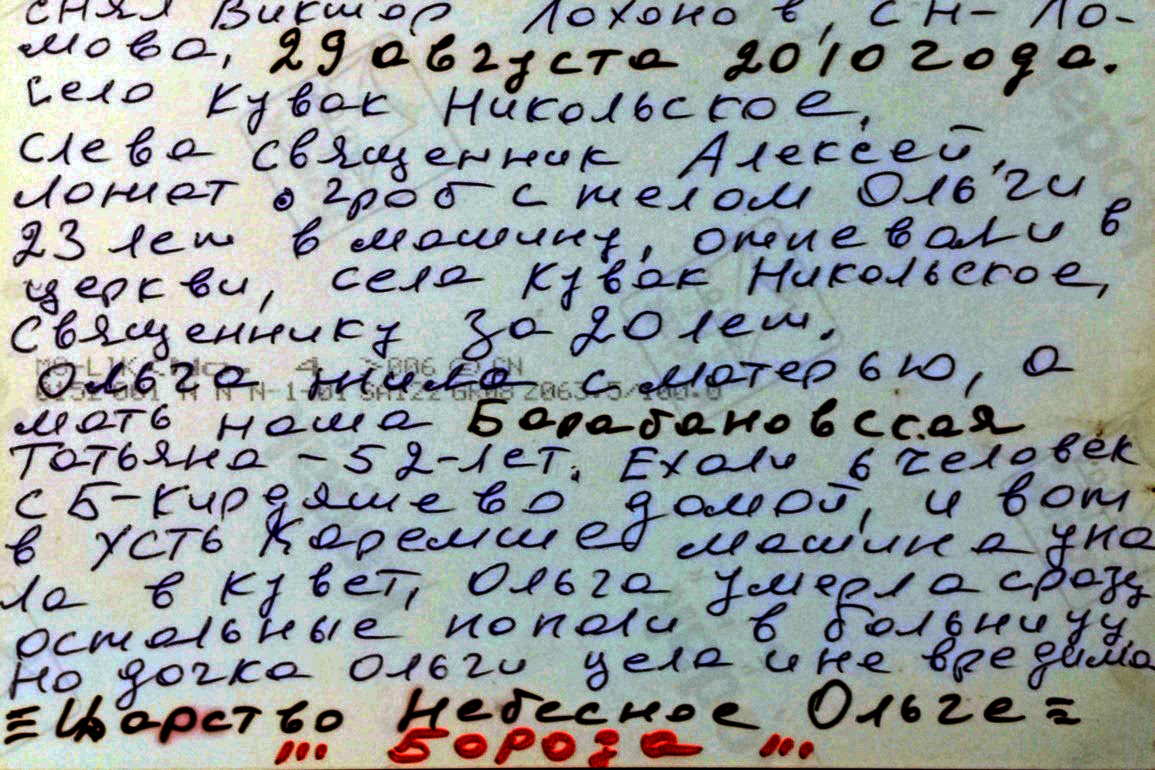 снял Виктор Лохонов, с Н-Ло-
мова, 29 августа 2010 года.
село Кувак Никольское,
слева священник Алексей,
ложат гроб с телом Ольги
23 лет в машину, отпевали в
церкви, села Кувак Никольское,
священнику за 20 лет.
Ольга жила с матерью, а
мать наша Барабановская
Татьяна - 52-лет. Ехали 6 человек
с Б-Кирдяшево домой, и вот
в Усть Каремше машина упа
ла в кувет, Ольга умерла сразу
остальные попали в больницу,
но дочка Ольги цела и не вредима
= Царство Небесное Ольге =
... Борода ...